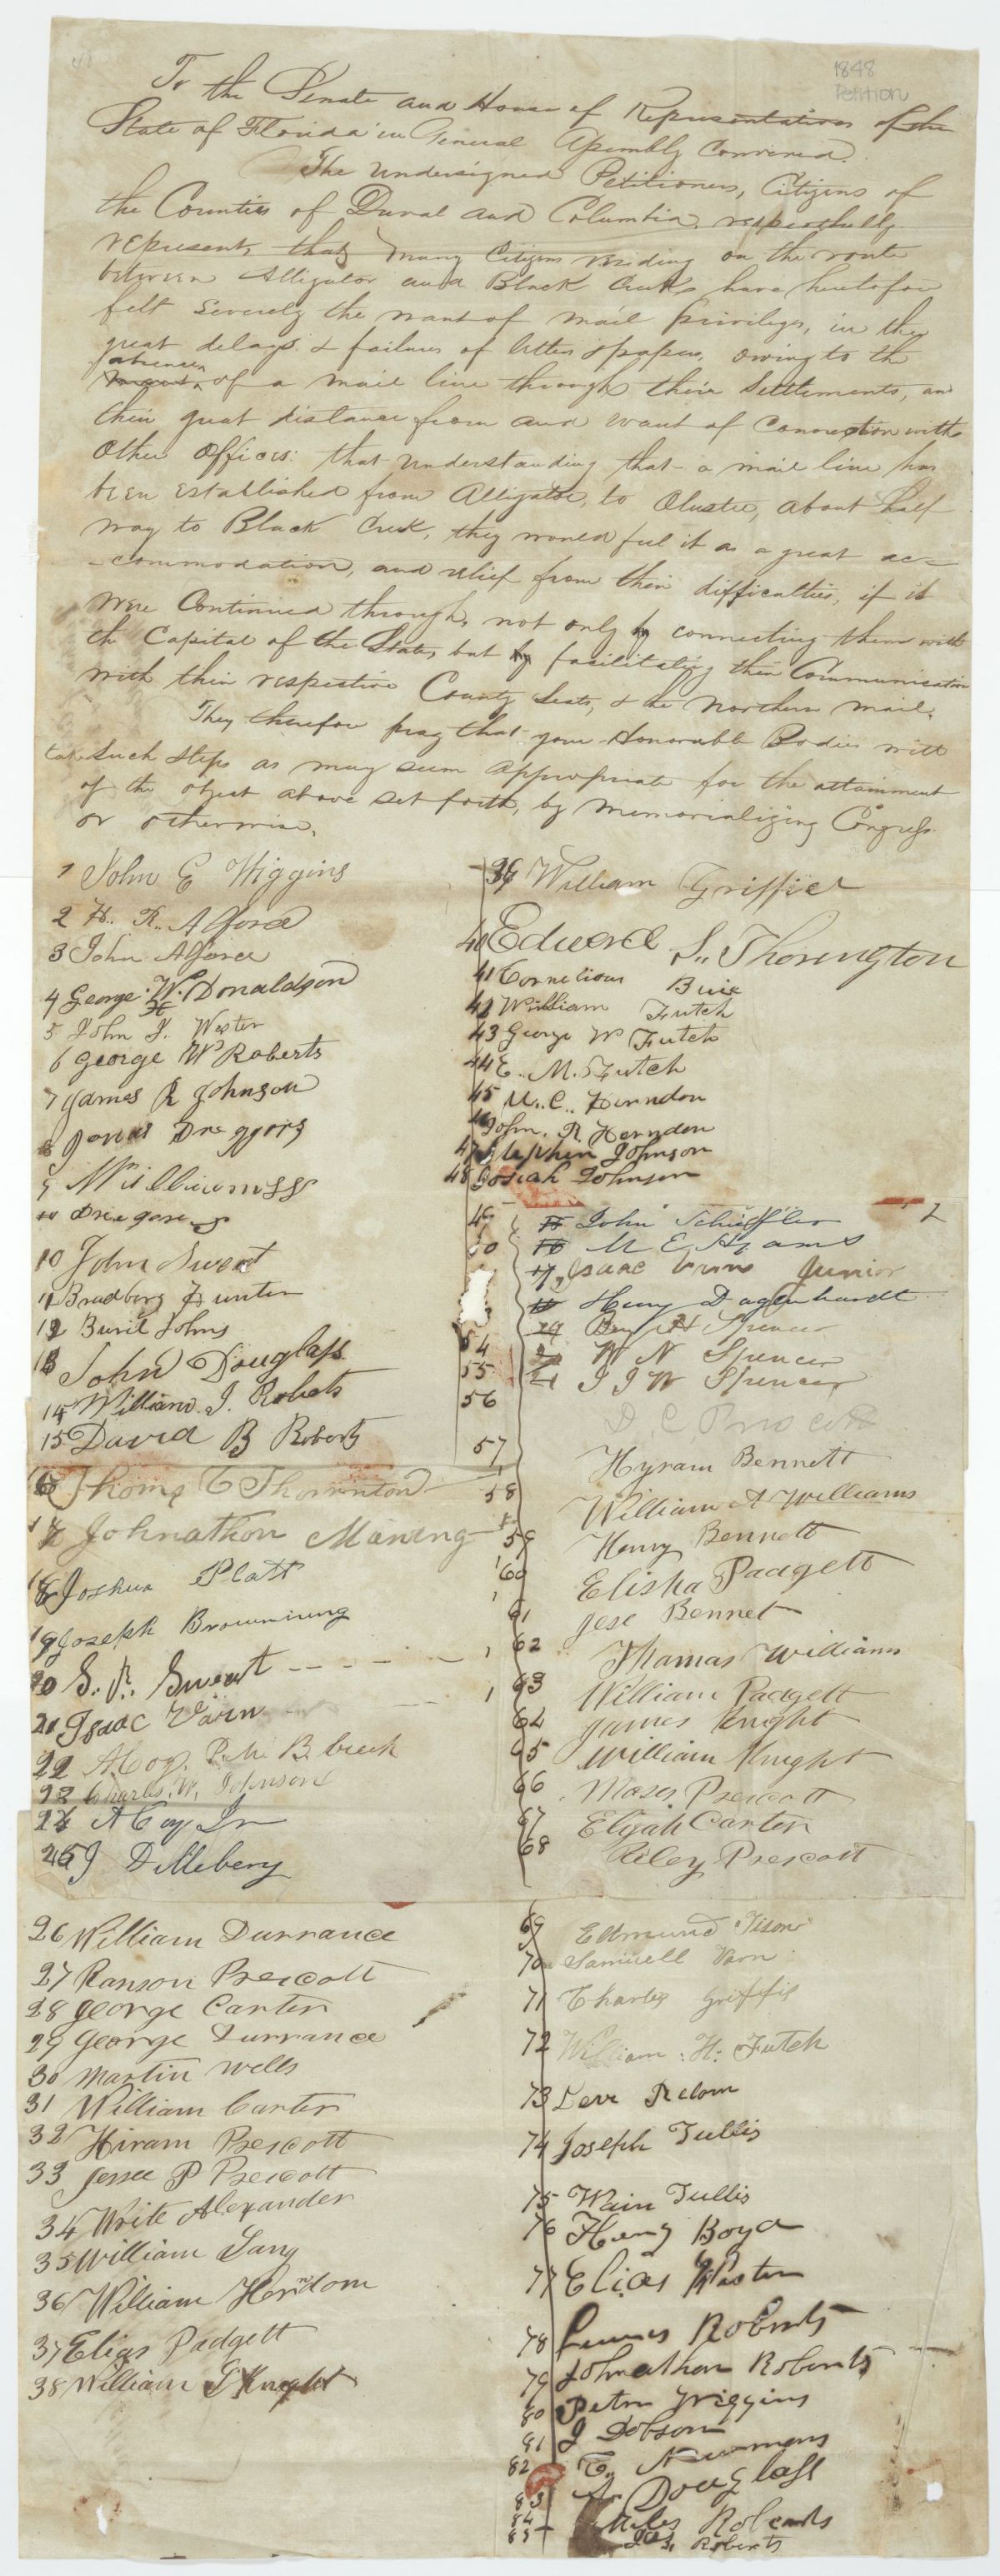 1848
Petition
To the Senate and House of Representatives of the
State of Florida in General Assembly Convened.
The Undersigned Petitioners, Citizens of
the Counties of Duval and Columbia, respectfully
represent, that many Citizens residing on the route
between Alligator and Black Creek have heretofore
felt severely the want of mail privileges, in the
great delays & failures of letters & papers, owing to the
absence
of a mail line through their Settlements, and
their great distance from and want of connection with
other offices: that understanding that a mail line has
been established from Alligator, to Olustee, about half
way to Black Creek, they would feel it as a great ac=
-commodation, and relief from their difficulties, if it
were Continued through, not only by connecting them with
the Capital of the State, but by facilitating their Communication
with their respective County Seats, & the Northern mail.
They therefore pray that your Honorable Bodies will
take such steps as may seem appropriate for the attainment
of the object above set forth, by memorializing Congress
or otherwise.
1 John E Wiggins
2 H. R. Alford
3 John Alford
4 George W. Donaldson
5 John J. Wester
6 George W Roberts
7 James R Johnson
8 Jonas Driggors
9 Williams
10 John Sweat
11 Bradberg Hunter
12 Buril Johns
13 John Douglass
14 William J. Roberts
15 David B Roberts
16 Thoms C Thornnton
17 Johnathon Maning
18 Joshua Platt
19 Joseph Brownning
20 S. R. Sweat
21 Isaac Varn
22 A Coy. P. M. B. Creek
23 Charles. W. Johnson
24 A Coy Jr
25 J D Mebery
26 William Durrance
27 Ranson Prescott
28 George Carter
29 George Durrance
30 Martin Wells
31 William Carter
32 Hiram Prescott
33 Jessee P Prescott
34 Write Alexander
35 William Lang
36 William Herndom
37 Elias Padgett
38 William S Knight
39 William Griffiel
40 Edward S. Thorington
41 Cornelious Buie
42 William Futch
43 George W Futch
44 E. M. Futch
45 M. C. Herndon
46 John. R Herndon
47 Stephen Johnson
48 Josiah Johnson
49 John Schiffler
50 M E Hyams
Isaac Varns Junior
Henry Dagenhardt
Benj H Spencer
54 W N Spencer
55 J J W Spencer
56 D. C. Prescott
57 Hyram Bennett
58 William A Williams
59 Henry Bennett
60 Elisha Padgett
61 Jese Bennet
62 Thamas Williams
63 William Padgett
64 James Knght
65 William Knight
66 Moses Prescott
67 Elijah Carter
68 Riley Prescott
69 Edmund Tison
70 Samuell Varn
71 Charles Griffis
72 William. H. Futch
73
74 Joseph Tullis
75 Wain Tullis
76 Henry Boyd
77 Elias Waster
78 Roberts
79 Johnathan Roberts
80 Peter Wiggins
81 J Dobson
82 C. Newmans
83 A. Douglass
84 Miles Roberts
85 Jas. Roberts